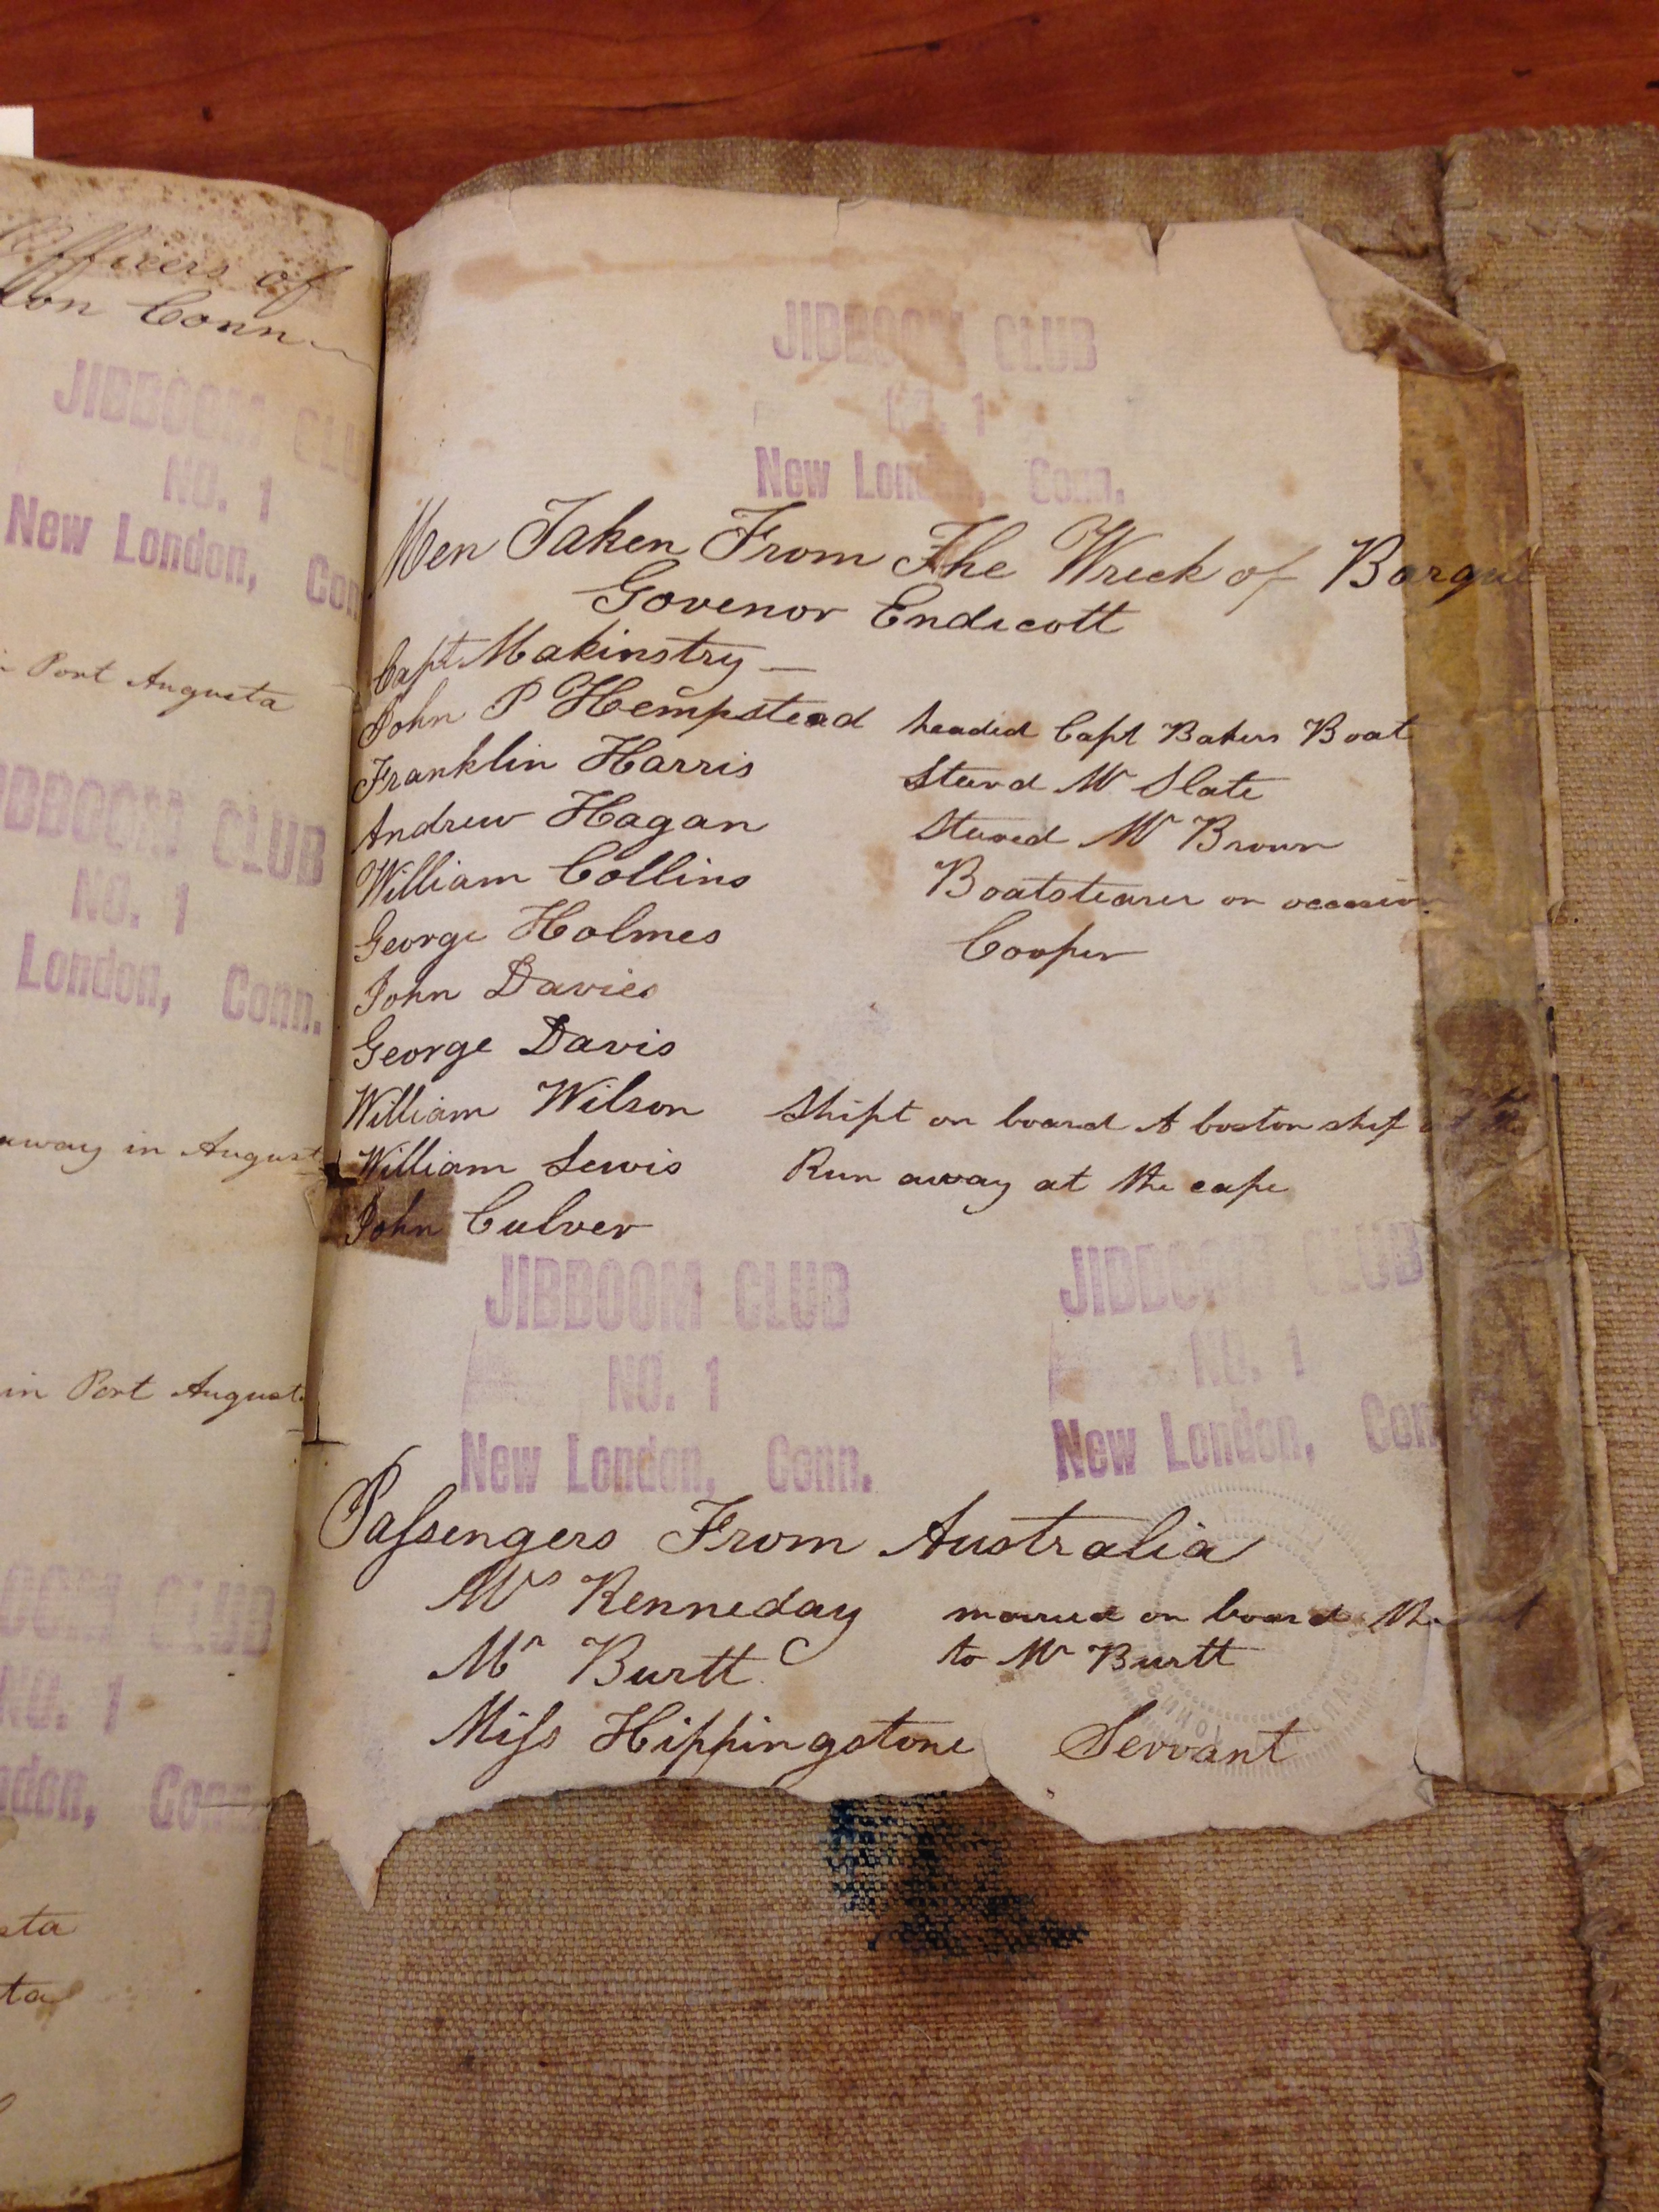 Officers of
Conn
JIBBOOM CLU
NO. 1
New London, Con
Port Augusta
JIBBOOM CLUB
NO. 1
London, Conn.
away in August
in Port August
CLUB
NO. 1
Conn.
JIBBOOM CLUB
NO. 1
New London, Conn.
Men Taken From The Wreck of Barque
Govenor Endicott
Capt Makinstry
John P Hempstead headed Capt Bakers Boat
Franklin Harris Steard Mr Slate
Andrew Hagan Steared Mr Brown
William Collins Boatstearer on occasion
George Holmes Cooper
John Davies
George Davis
William Wilson Shipt on board A boston ship
William Lewis Run away at the cape
John Culver
JIBBOOM CLUB
NO. 1
New London, Conn.
JIBBOOM CLUB
NO. 1
New London, Con
Passengers From Australia
Mrs Kenneday married on board
Mr Burtt to Mr Burtt
Miss Hippingstone Servant